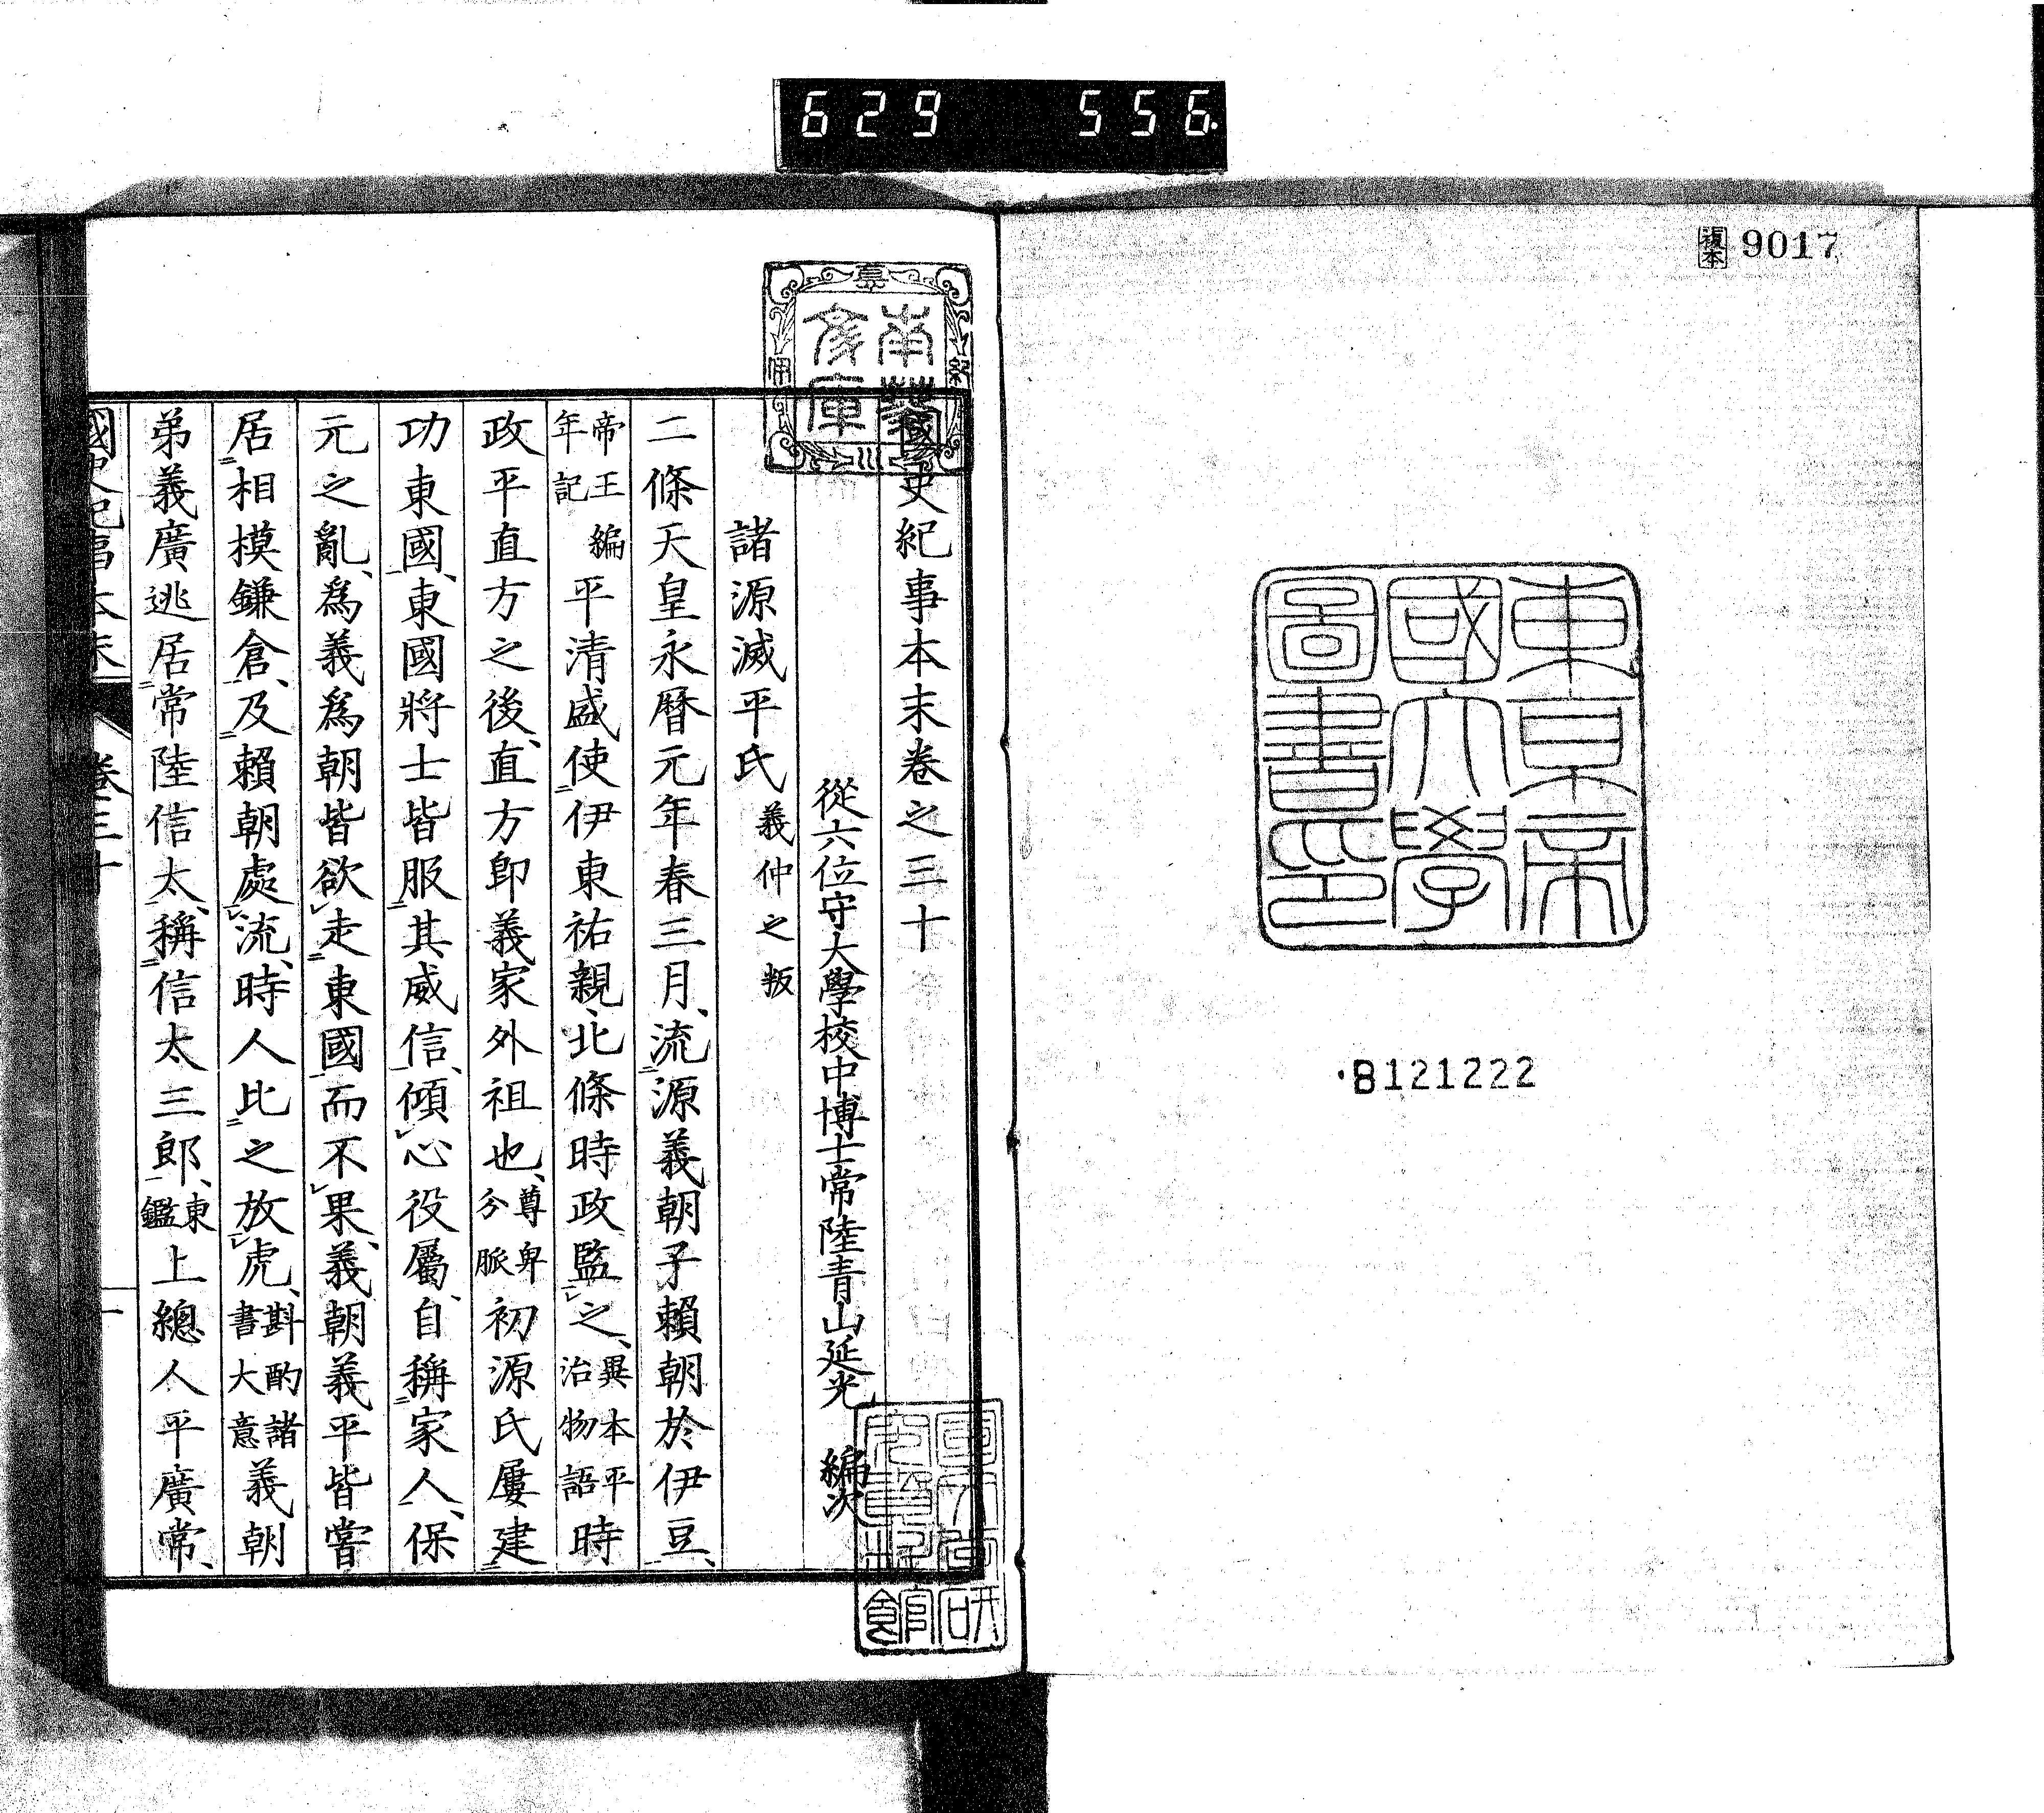 629 556
複本 9017
東京帝
國大學
圖書印
B121222
南葵
文庫
國史紀事本末卷之三十
從六位守大學校中博士常陸青山延光 編次
諸源滅平氏 義仲之叛
二條天皇永曆元年春三月、流源義朝子賴朝於伊豆、
帝王編年記 平清盛使伊東祐親、北條時政監之、異本平治物語 時
政平直方之後、直方卽義家外祖也、尊卑分脈 初源氏屢建
功東國、東國將士皆服其威信、傾心役屬、自稱家人、保
元之亂、爲義爲朝皆欲走東國而不果、義朝義平皆嘗
居相模鎌倉、及賴朝處流、時人比之放虎、斟酌諸書大意 義朝
弟義廣逃居常陸信太、稱信太三郎、東鑑 上總人平廣常、
國史紀事本末 卷三十 一